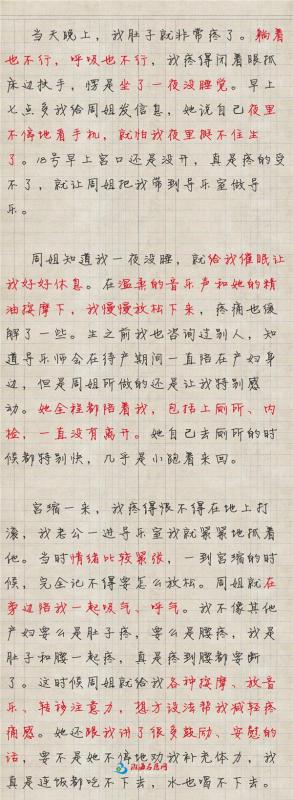 当天晚上，我肚子就非常疼了。躺着
也不行，呼吸也不行，我疼得闭着眼抓
床边扶手，愣是坐了一夜没睡觉。早上
七点多我给周姐发信息，她说自己夜里
不停地看手机，就怕我夜里挺不住生
了。18号早上宫口还是没开，真是疼的受
不了，就让周姐把我带到导乐室做导
乐。
周姐知道我一夜没睡，就给我催眠让
我好好休息。在温柔的音乐声和她的精
油按摩下，我慢慢放松下来，疼痛也缓
解了一些。生之前我也咨询过别人，知
道导乐师会在待产期间一直陪在产妇身
边，但是周姐所做的还是让我特别感
动。她全程都陪着我，包括上厕所、内
检，一直没有离开。她自己去厕所的时
候都特别快，几乎是小跑着来回。
宫缩一来，我疼得恨不得在地上打
滚，我老公一进导乐室我就紧紧地抓着
他。当时情绪比较紧张，一到宫缩的时
候，完全记不得要怎么放松。周姐就在
旁边陪我一起吸气、呼气。我不像其他
产妇要么是肚子疼，要么是腰疼，我是
肚子和腰一起疼，真是疼到腰都要断
了。这时候周姐就给我各种按摩、放音
乐、转移注意力，想方设法帮我减轻疼
痛感。她还跟我讲了很多鼓励、安慰的
话，要不是她不停地劝我补充体力，我
真是连饭都吃不下去，水也喝不下去。